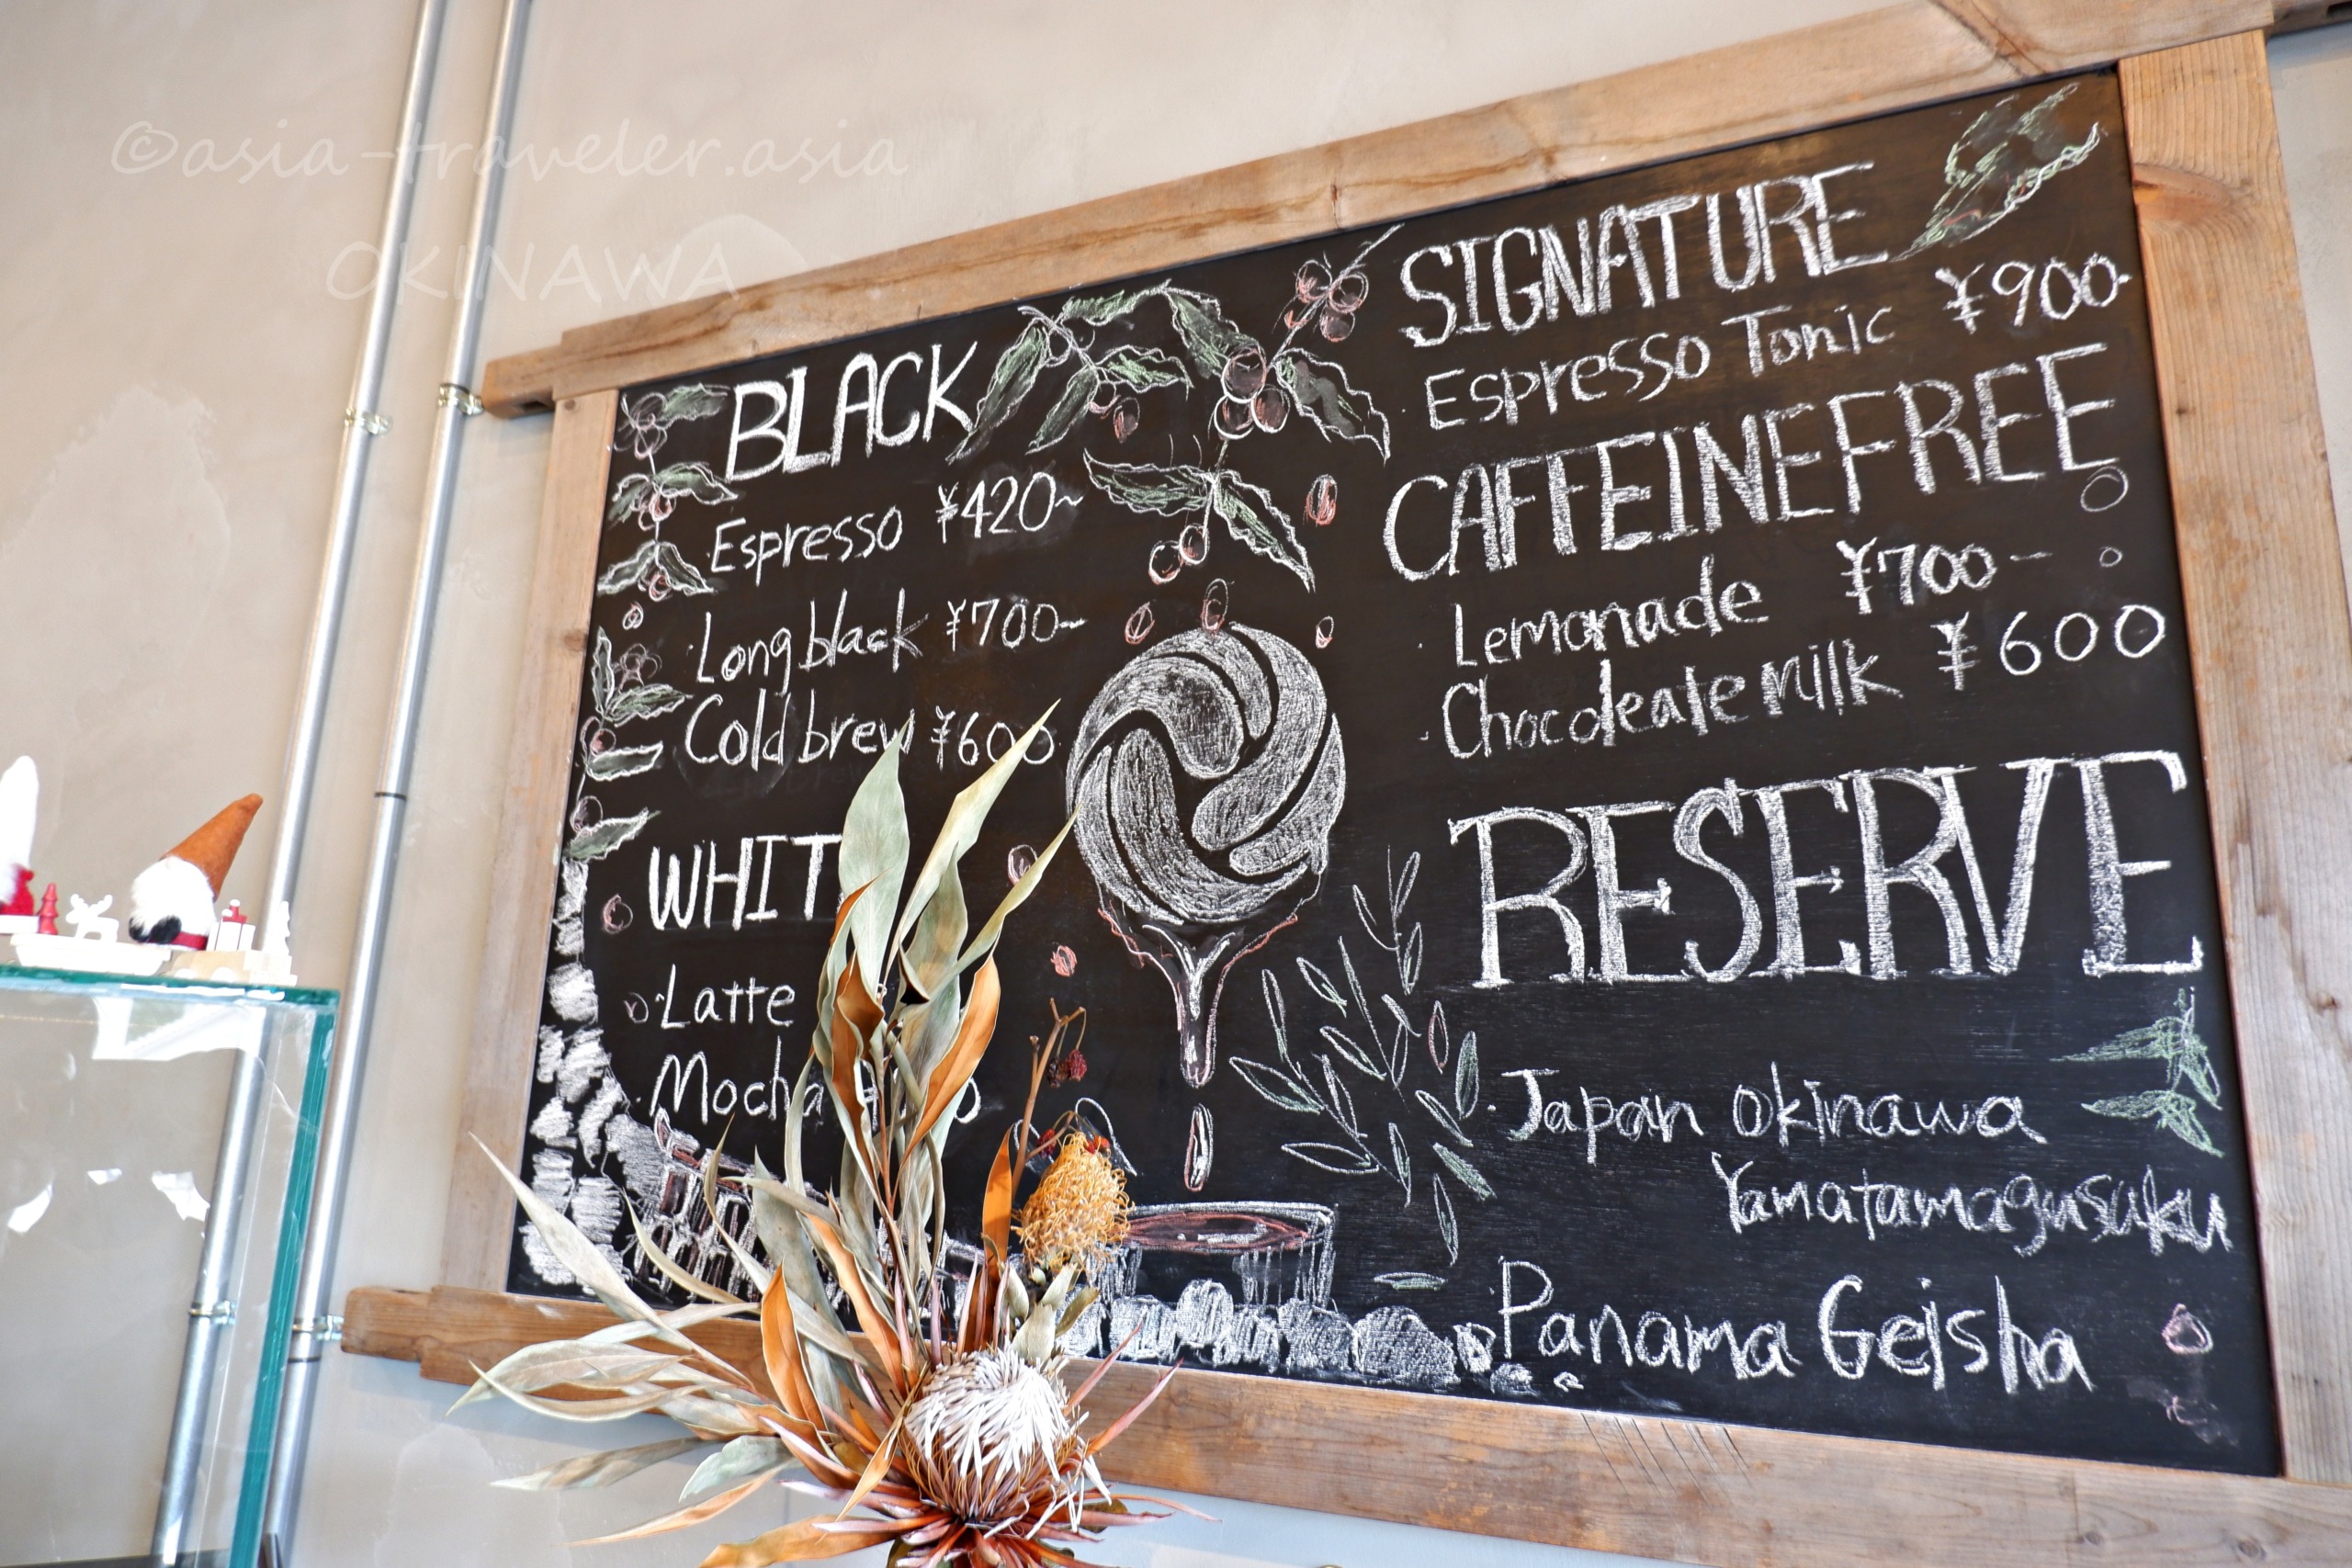 ©asia-traveler.asia
OKINAWA
BLACK
Espresso ¥420~
Long black ¥700~
Cold brew ¥600
Latte
Mocha
SIGNATURE
Espresso Tonic ¥900-
CAFFEINEFREE
Lemonade ¥700-
Chocoleate Milk ¥600
RESERVE
Japan Okinawa
Yamatamagusuku
Panama Geisha